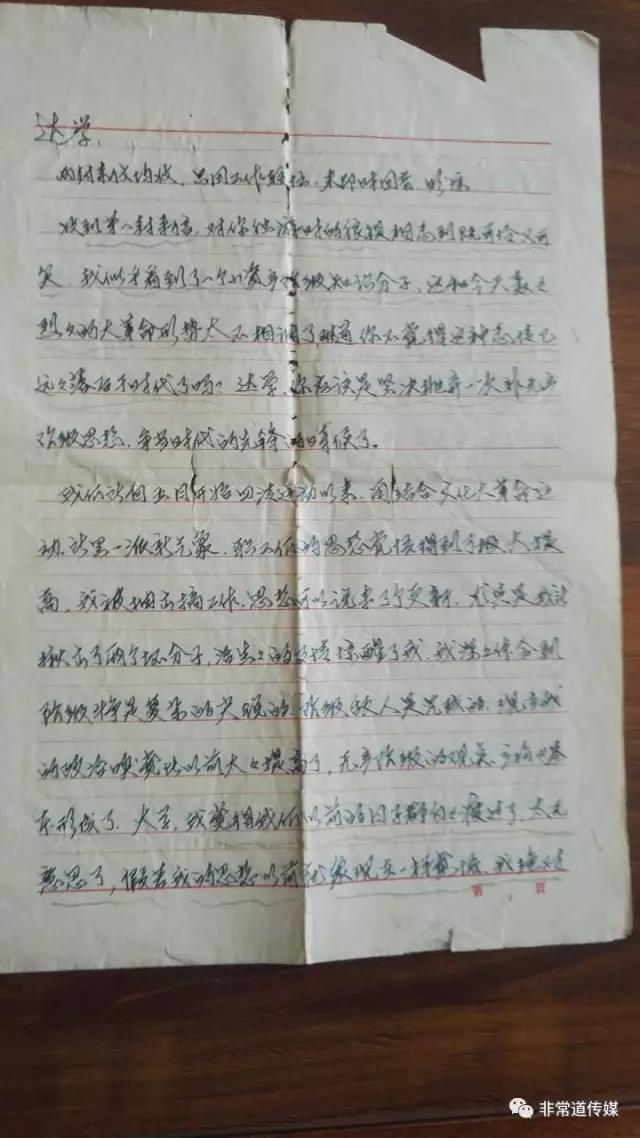 达学：
两封来信均收，只因工作较忙，未即时回答，的谅
收到第一封来信，对你他
笑，我似乎看到了一个小资产阶级知识分子，这和今天轰轰
烈烈的大革命形势太不相调了难道你不觉得这种感情已
远远落后于时代了吗？达学，你应该是坚决抛弃一次非无产
阶级思想，争当时代的先锋的时候了。
我们站自五月开始四清运动以来，结合文化大革命运
动，站里一派新气象，职工们的思想觉悟得到了极大提
高，我被抽去搞工作，思想可以说来了个更新，尤其是我站
揪出了两个坏分子，活生生的事实惊醒了我，我深深体会到
阶级斗争是复杂的尖锐的，阶级敌人是凶残的，现在我
的政治嗅觉比以前大大提高了，无产阶级的观点
本形成了，大学，我觉得我们以前的日子都白白渡过了，太无
意思了，假若我的思想以前就象现在一样
第 页
非常道传媒